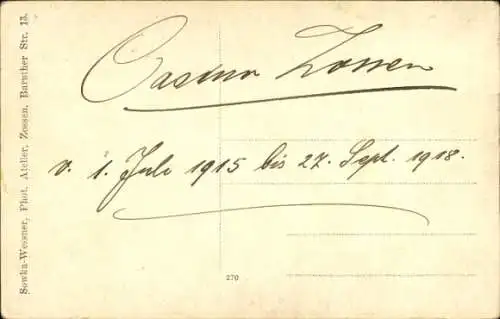 Casino Zossen
v. 1. Juli 1915 bis 27. Sept. 1918.
Sowka-Wessner, Phot. Atelier, Zossen, Baruther Str. 13.
270